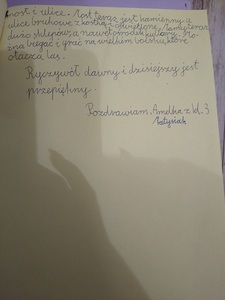 most i ulice. Most teraz jest kamienny a
ulica brukowa z kostką i oświetlona. Jest teraz
dużo sklepów, a nawet ośrodek kultury. Mo-
żna biegać i grać na wielkim boisku, które
otacza las.
Ryczywół dawny i dzisiejszy jest
przepiękny.
Pozdrawiam. Amelka z kl. 3
Matysiak